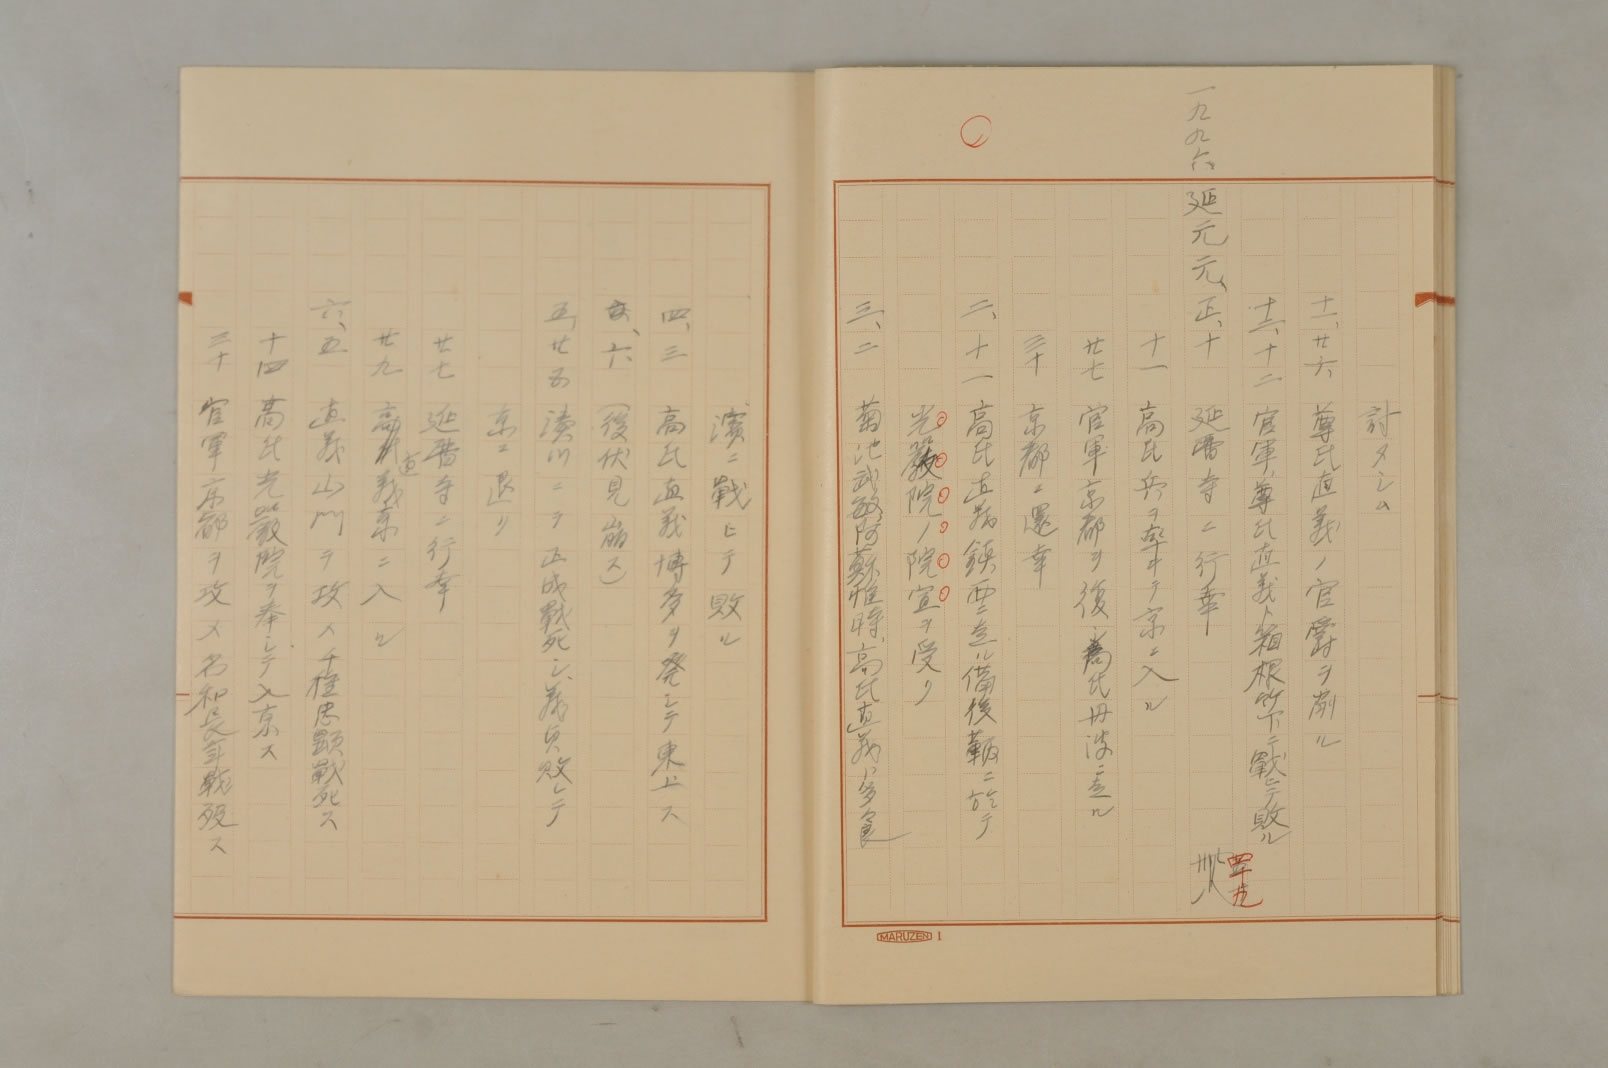 討タシム
十一、廿六 尊氏直義ノ官爵ヲ削ル
十二、十二 官軍、尊氏直義ト箱根竹下ニ戰ヒテ敗ル
一九九六 延元元、正、十 延暦寺ニ行幸
四十九
卅八
十一 高氏兵ヲ率ヰテ京ニ入ル
廿七 官軍京都ヲ復、高氏丹波ニ走ル
三十 京都ニ還幸
二、十一 高氏直義鎮西ニ走ル備後鞆ニ於テ
光嚴院ノ院宣ヲ受ク
三、二 菊池武敏阿蘇惟時、高氏直義ト多良
MARUZEN 1
濱ニ戰ヒテ敗ル
四、三 高氏直義博多ヲ発シテ東上ス
六、(後伏見崩ス)
五、廿五 湊川ニテ正成戰死シ、義貞敗レテ
京ニ退ク
廿七 延暦寺ニ行幸
廿九 直義京ニ入ル
六、五 直義山門ヲ攻メ千種忠顕戰死ス
十四 高氏光嚴院ヲ奉シテ入京ス
三十 官軍京都ヲ攻メ名和長年戰歿ス